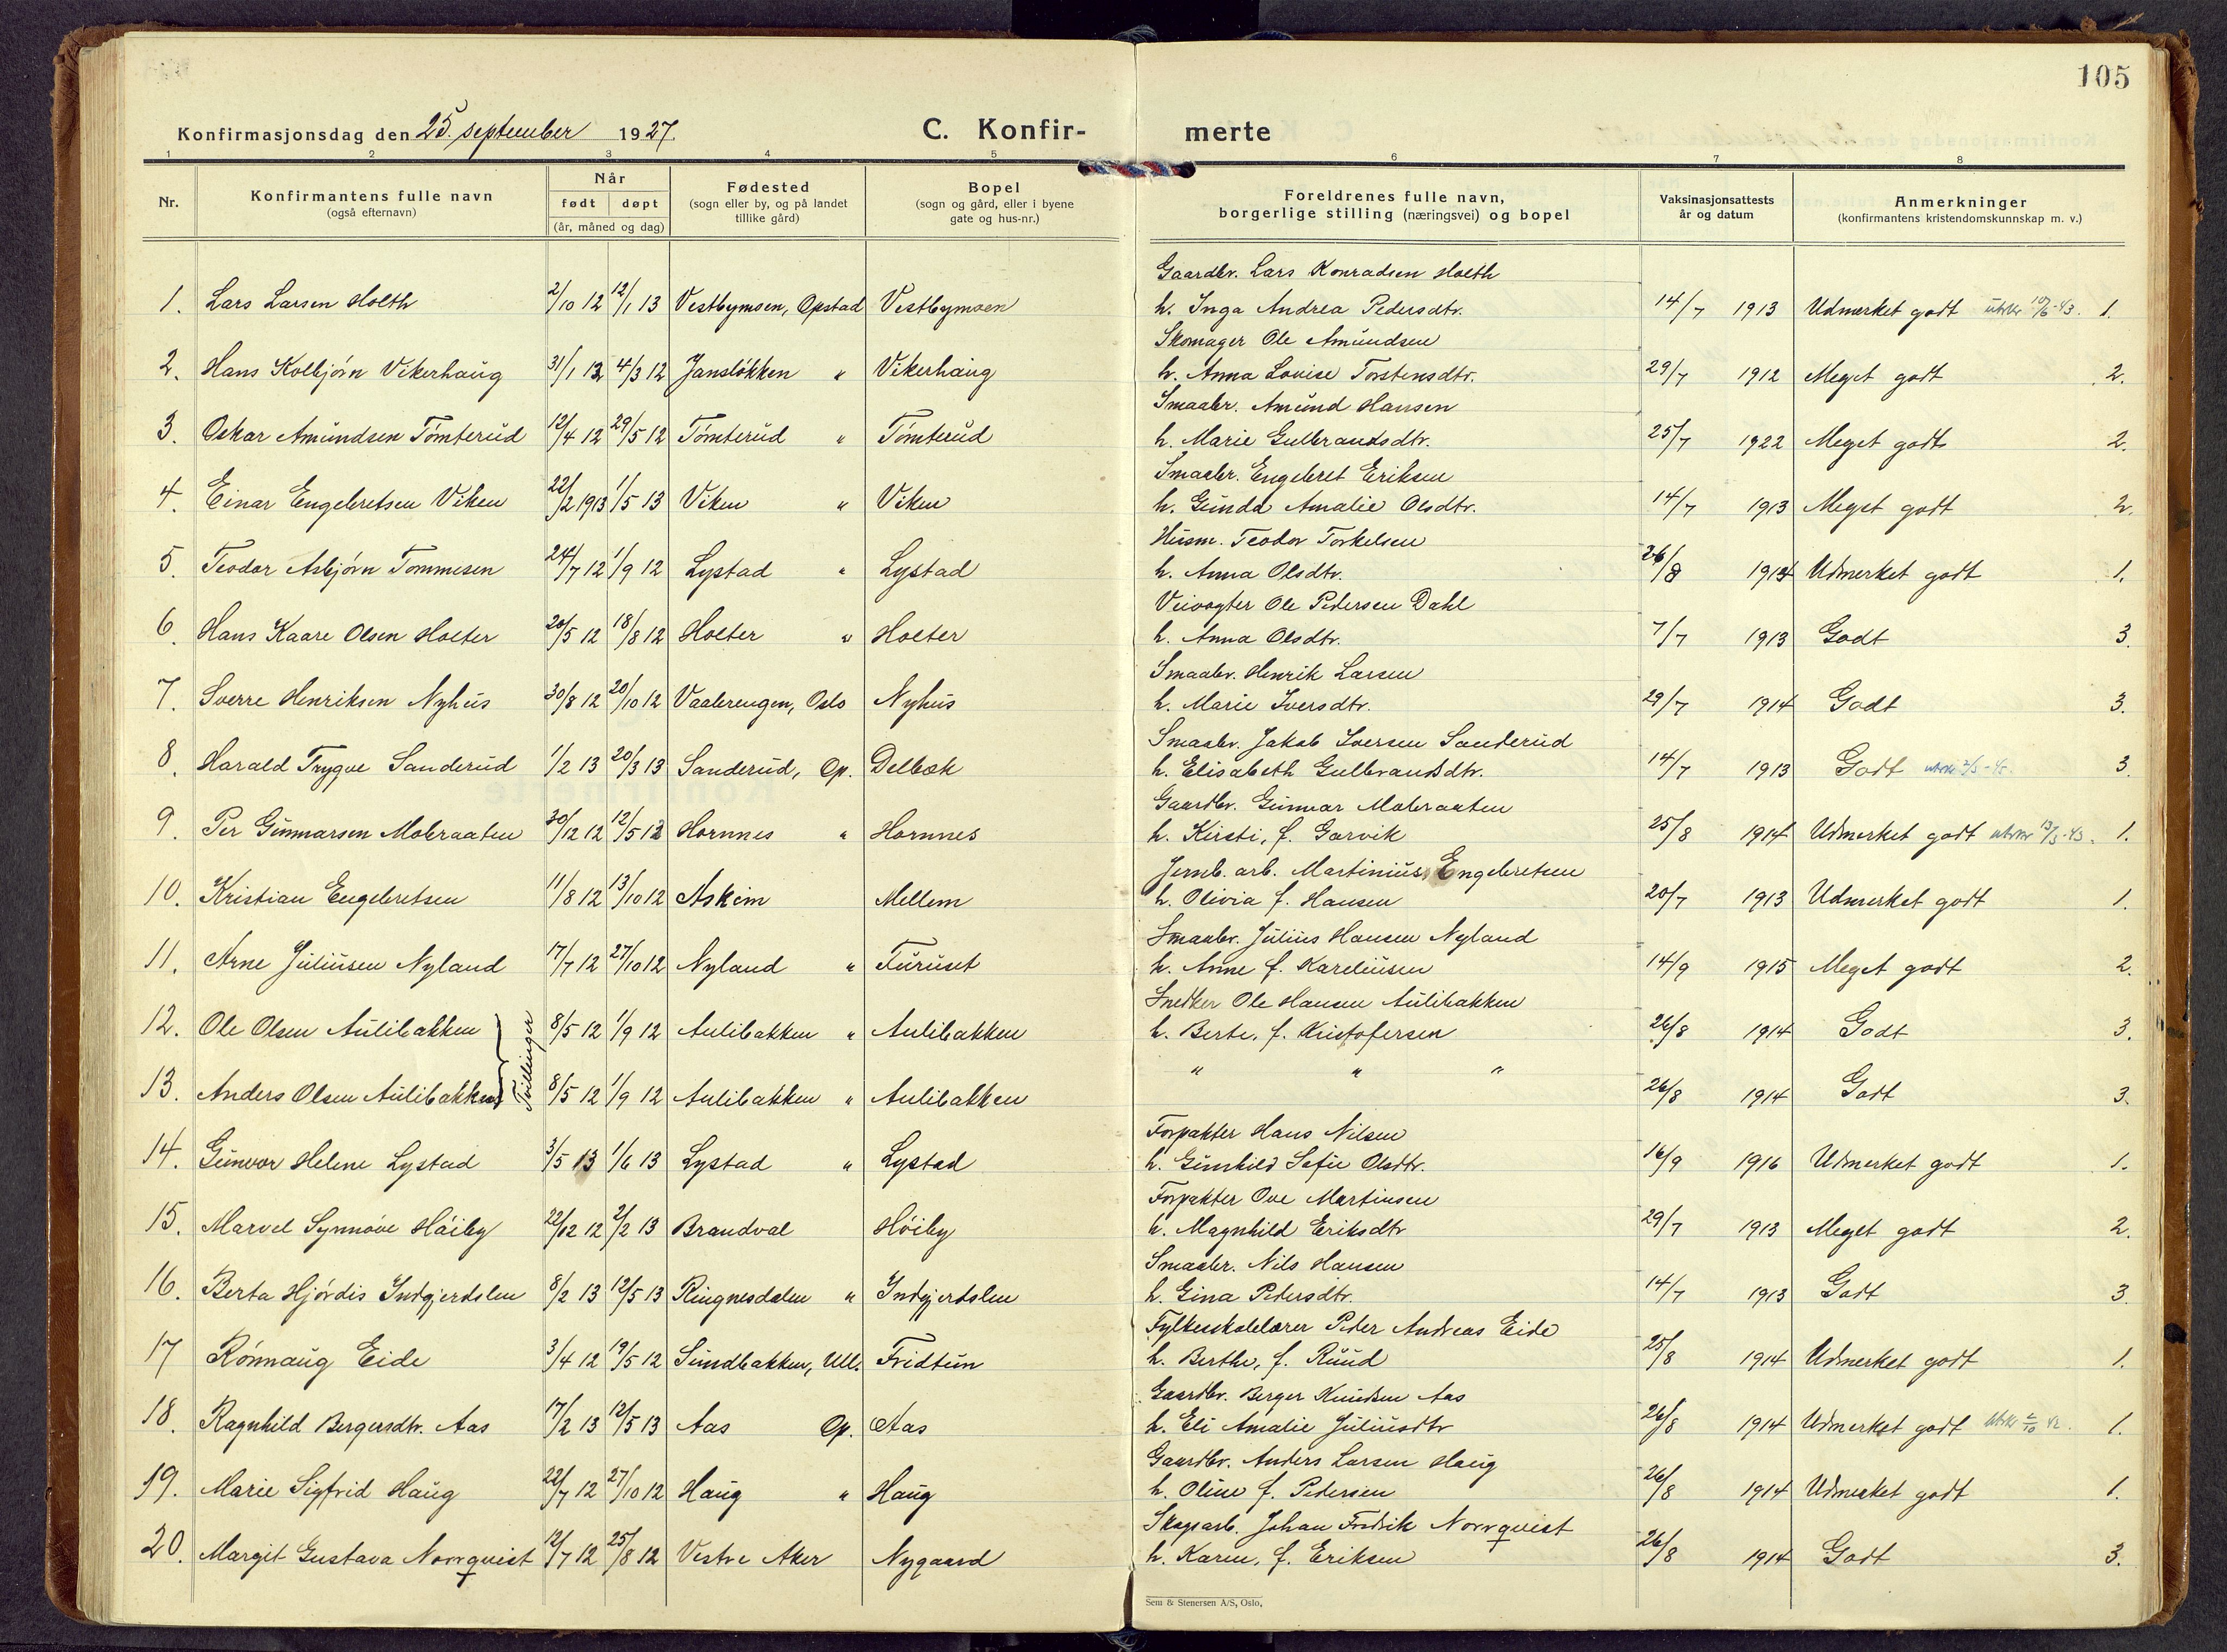 105
Konfirmasjonsdag den 25. september 1927. C. Konfir- merte
1 2 3 4 5 6 7 8
Nr. Konfirmantens fulle navn (også efternavn) Når født døpt (år, måned og dag) Fødested (sogn eller by, og på landet tillike gård) Bopel (sogn og gård, eller i byene gate og hus-nr.) Foreldrenes fulle navn, borgerlige stilling (næringsvei) og bopel Vaksinasjonsattests år og datum Anmerkninger (konfirmantens kristendomskunnskap m. v.)
Gaardbr. Lars Konradsen Holth
1. Lars Larsen Holth 2/10 12 12/1 13 Vestbymoen, Opstad Vestbymoen h. Inga Andrea Pedersdtr. 14/7 1913 Udmerket godt 1.
Skomager Ole Amundsen
2. Hans Kolbjørn Vikerhaug 31/1 12 4/3 12 Jansløkken " Vikerhaug h. Anna Lovise Torstensdtr. 29/7 1912 Meget godt 2.
Smaabr. Amund Hansen
3. Oskar Amundsen Tomterud 12/4 12 29/5 12 Tomterud " Tomterud h. Marie Gulbrandsdtr. 25/7 1922 Meget godt 2.
Smaabr. Engebret Eriksen
4. Einar Engebretsen Viken 22/2 1913 1/5 13 Viken " Viken h. Gunda Amalie Olsdtr. 14/7 1913 Meget godt 2.
Husm. Teodor Torkelsen
5. Teodor Asbjørn Tommesen 24/7 12 1/9 12 Lystad " Lystad h. Anna Olsdtr. 26/8 1914 Udmerket godt 1.
Veivogter Ole Pedersen Dahl
6. Hans Kaare Olsen Holter 20/5 12 18/8 12 Holter " Holter h. Anna Olsdtr. 7/7 1913 Godt 3.
Smaabr. Henrik Larsen
7. Sverre Henriksen Nyhus 30/8 12 20/10 12 Vaalerengen, Oslo Nyhus h. Marie Iversdtr. 29/7 1914 Godt 3.
Smaabr. Jakob Iversen Sanderud
8. Harald Trygve Sanderud 1/2 13 20/3 13 Sanderud, Op. Delbæk h. Elisabeth Gulbrandsdtr. 14/7 1913 Godt 3.
Gaardbr. Gunnar Mobraaten
9. Per Gunnarsen Mobraaten 30/12 12 12/5 13 Hornnes " Hornnes h. Kirsti, f. Garvik 25/8 1914 Udmerket godt 1.
Jernb. arb. Martinius Engebretsen
10. Kristian Engebretsen 11/8 12 13/10 12 Askim Mellem h. Olivia f. Hansen 20/7 1913 Udmerket godt 1.
Smaabr. Julius Hansen Nyland
11. Arne Juliusen Nyland 17/7 12 27/10 12 Nyland " Furuset h. Anne f. Kareliusen 14/9 1915 Meget godt 2.
Snedker Ole Hansen Aulibakken
12. Ole Olsen Aulibakken Tvillinger 8/5 12 1/9 12 Aulibakken " Aulibakken h. Berte, f. Kristofersen 26/8 1914 Godt 3.
" " "
13. Anders Olsen Aulibakken 8/5 12 1/9 12 Aulibakken " Aulibakken 26/8 1914 Godt 3.
Forpakter Hans Nilsen
14. Gunvor Helene Lystad 3/5 13 1/6 13 Lystad " Lystad h. Gunhild Sofie Olsdtr. 16/9 1916 Udmerket godt 1.
Forpakter Ove Martinsen
15. Marvel Synnøve Høiby 22/12 12 2/2 13 Brandval Høiby h. Magnhild Eriksdtr 29/7 1913 Meget godt 2.
Smaabr. Nils Hansen
16. Berta Hjørdis Indgjerdslen 8/2 13 12/5 13 Ringnesdalen " Indgjerdslen h. Gina Pedersdtr. 14/7 1913 Godt 3.
Fylkesskolelærer Peder Andreas Eide
17 Rønnaug Eide 3/4 12 19/5 12 Sundbakken, Ull. Fridtun h. Berthe, f. Ruud 25/8 1914 Udmerket godt 1.
Gaardbr. Berger Knudsen Aas
18. Ragnhild Bergersdtr. Aas 17/2 13 12/5 13 Aas Op. Aas h. Eli Amalie Juliusdtr 26/8 1914 Udmerket godt 1.
Gaardbr. Anders Larsen Haug
19. Marie Sigfrid Haug 22/7 12 27/10 12 Haug " Haug h. Oline f. Pedersen 26/8 1914 Udmerket godt 1.
Skogsarb. Johan Fredrik Norrquist
20. Margit Gustava Norrquist 12/7 12 25/8 12 Vestre Aker Nygaard h. Karen, f. Eriksen 26/8 1914 Godt 3.
Sem & Stenersen A/S, Oslo.